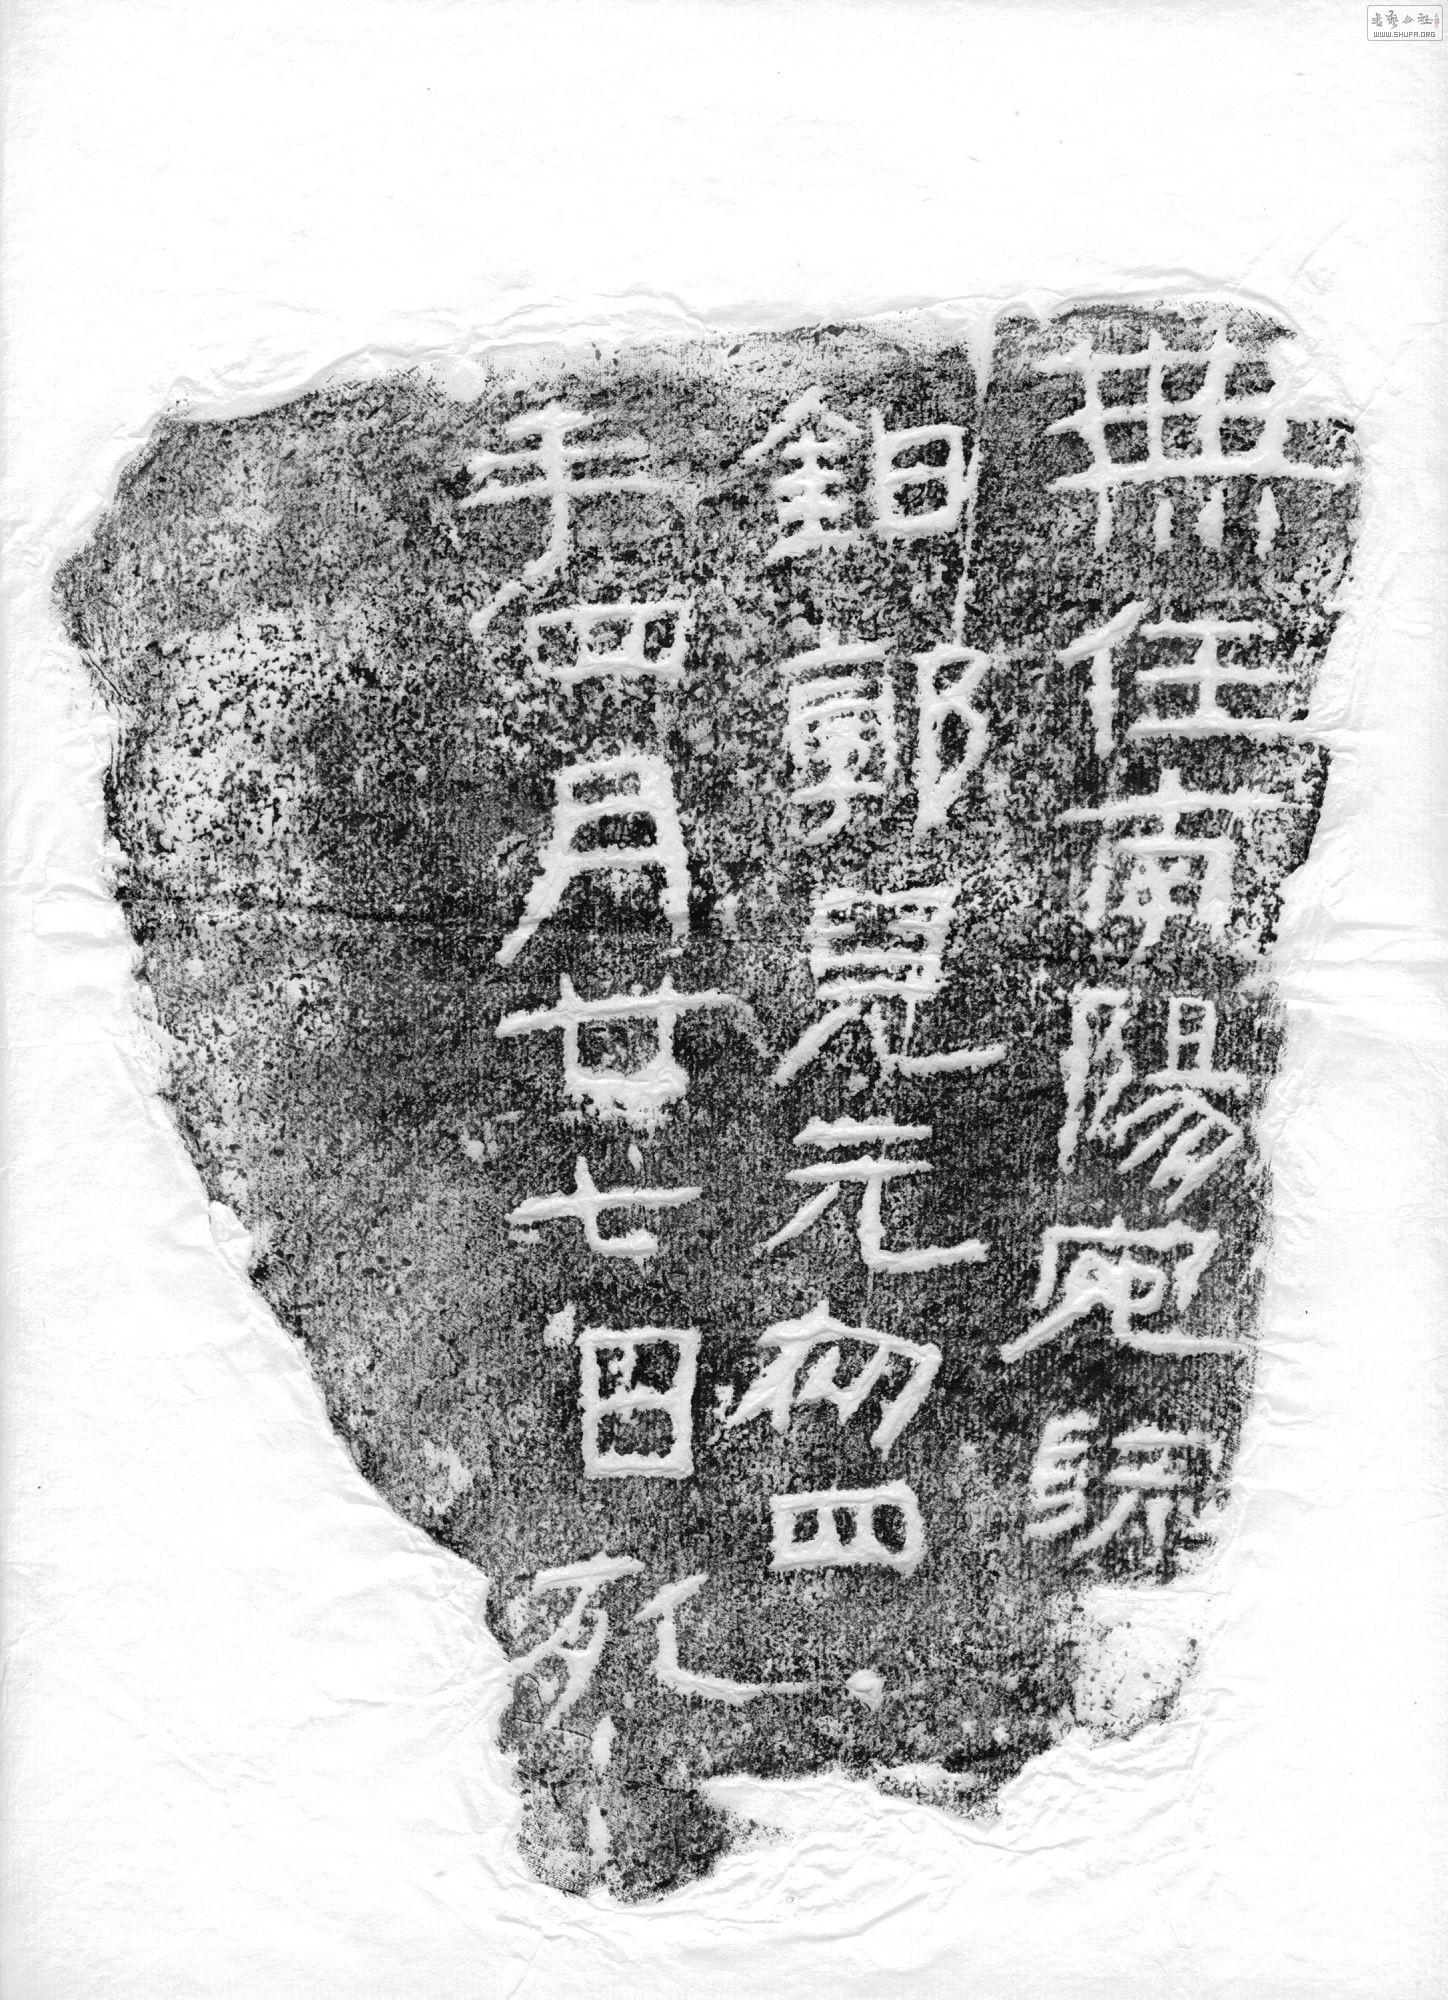 無任南陽宛髡
鉗郭元初四
年四月廿七日死
書藝公社
WWW.SHUFA.ORG